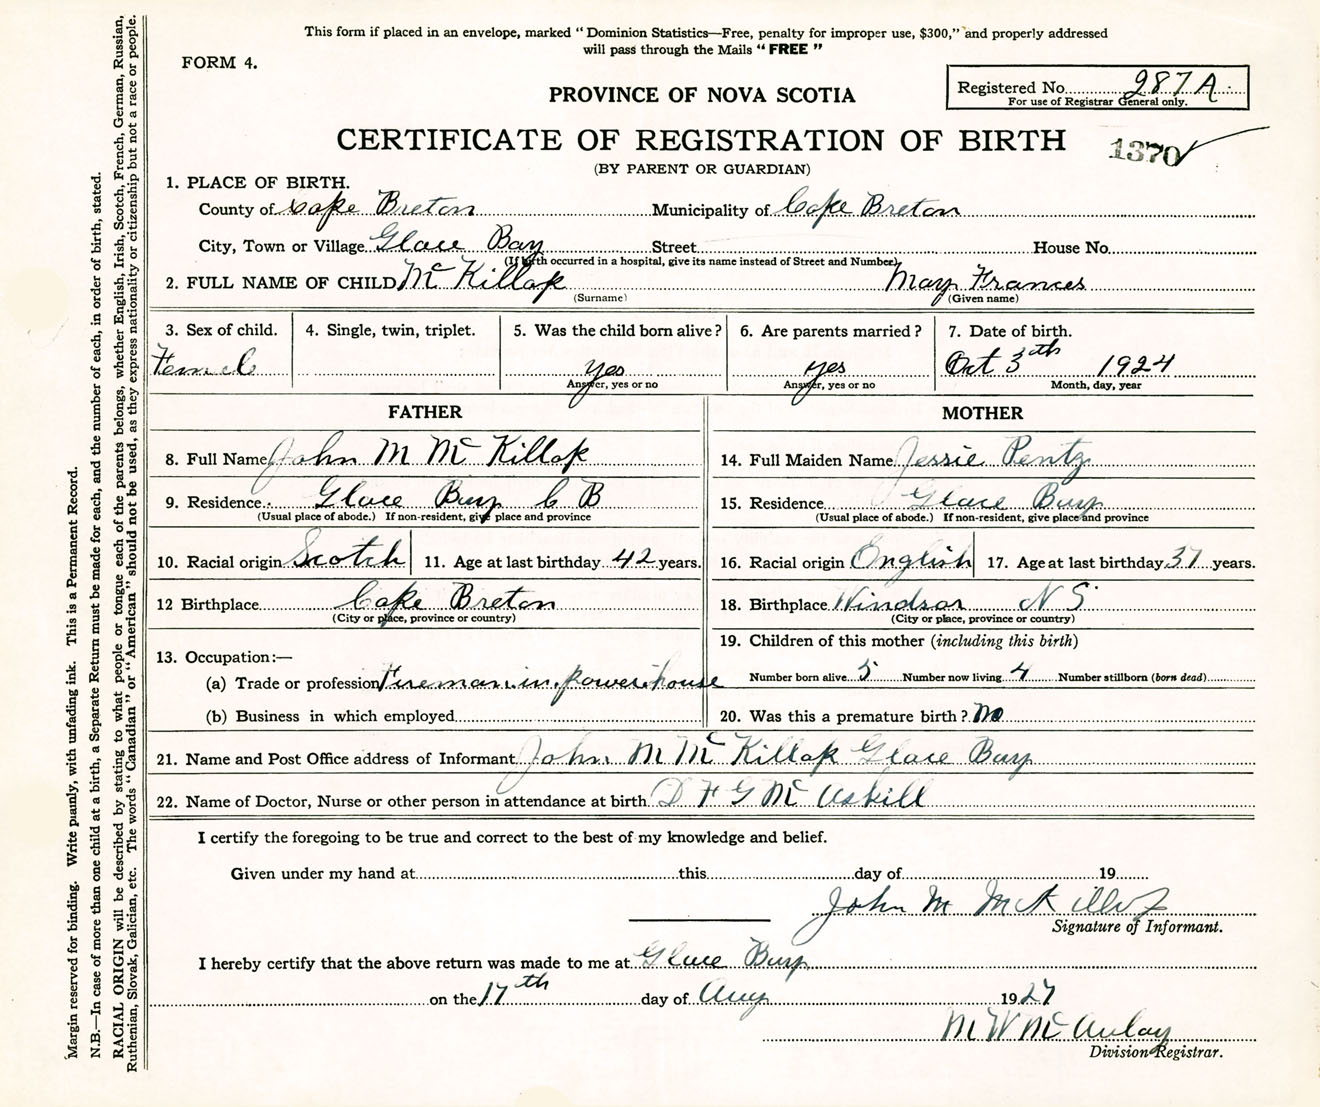 This form if placed in an envelope, marked "Dominion Statistics—Free, penalty for improper use, $300," and properly addressed
will pass through the Mails "FREE"
FORM 4.
Registered No. 287 A
For use of Registrar General only.
PROVINCE OF NOVA SCOTIA
CERTIFICATE OF REGISTRATION OF BIRTH
1370
(BY PARENT OR GUARDIAN)
1. PLACE OF BIRTH.
County of Cape Breton Municipality of Cape Breton
City, Town or Village Glace Bay Street House No.
(If birth occurred in a hospital, give its name instead of Street and Number)
2. FULL NAME OF CHILD Mc Killop Mary Frances
(Surname) (Given name)
3. Sex of child. 4. Single, twin, triplet. 5. Was the child born alive? 6. Are parents married? 7. Date of birth.
Female yes yes Oct 3th 1924
Answer, yes or no Answer, yes or no Month, day, year
FATHER MOTHER
8. Full Name John M Mc Killop 14. Full Maiden Name Jessie Pentz
9. Residence Glace Bay C B 15. Residence Glace Bay
(Usual place of abode.) If non-resident, give place and province (Usual place of abode.) If non-resident, give place and province
10. Racial origin Scotch 11. Age at last birthday 42 years. 16. Racial origin English 17. Age at last birthday 37 years.
12 Birthplace Cape Breton 18. Birthplace Windsor N S
(City or place, province or country) (City or place, province or country)
19. Children of this mother (including this birth)
13. Occupation:—
(a) Trade or profession Fireman in power house Number born alive 5 Number now living 4 Number stillborn (born dead)
(b) Business in which employed 20. Was this a premature birth? no
21. Name and Post Office address of Informant John M Mc Killop Glace Bay
22. Name of Doctor, Nurse or other person in attendance at birth D F G Mc Askill
I certify the foregoing to be true and correct to the best of my knowledge and belief.
Given under my hand at this day of 19
John M McKillop
Signature of Informant.
I hereby certify that the above return was made to me at Glace Bay
on the 17th day of Aug 1927
M W Mc Aulay
Division Registrar.
Margin reserved for binding. Write plainly, with unfading ink. This is a Permanent Record.
N.B.—In case of more than one child at a birth, a Separate Return must be made for each, and the number of each, in order of birth, stated.
RACIAL ORIGIN will be described by stating to what people or tongue each of the parents belongs, whether English, Irish, Scotch, French, German, Russian,
Ruthenian, Slovak, Galician, etc. The words "Canadian" or "American" should not be used, as they express nationality or citizenship but not a race or people.